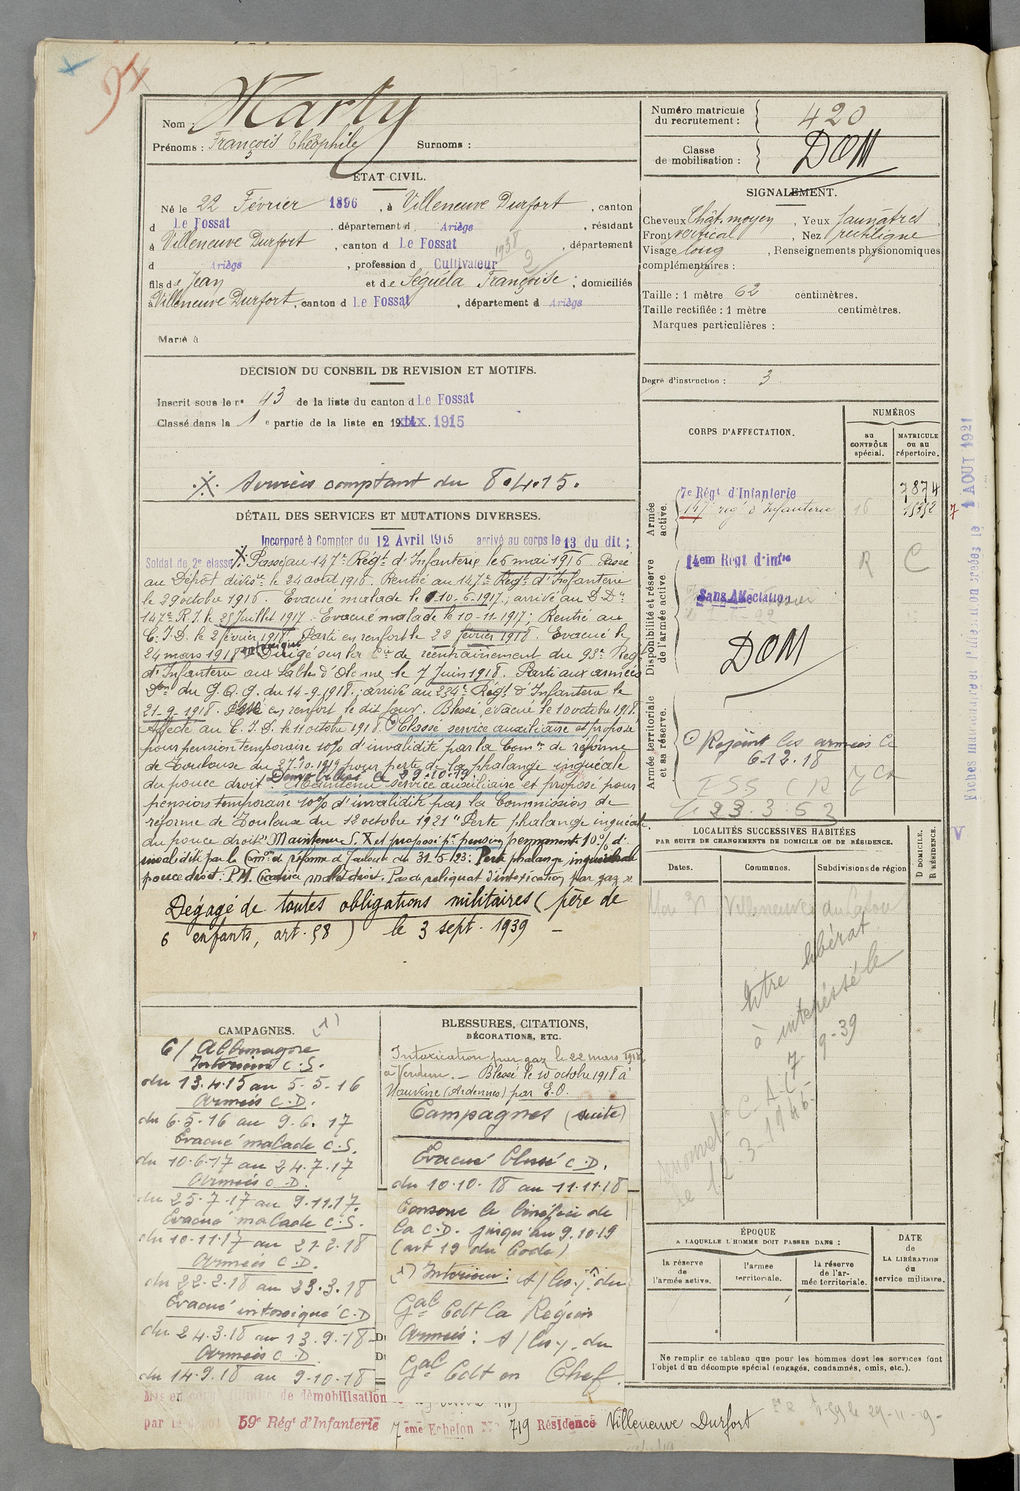 94
Nom : Marty
Prénoms : François Théophile Surnoms :
Numéro matricule du recrutement : 420
Classe de mobilisation : DOM
ÉTAT CIVIL.
Né le 22 Février 1896, à Villeneuve Durfort, canton
d Le Fossat, département d Ariège, résidant
à Villeneuve Durfort, canton d Le Fossat, département
d Ariège, profession d Cultivateur
fils de Jean et de Séguéla Françoise; domiciliés
à Villeneuve Durfort, canton d Le Fossat, département d Ariège
Marié à
SIGNALEMENT.
Cheveux Chât. moyen, Yeux Jaunâtres
Front vertical, Nez rectiligne
Visage long, Renseignements physionomiques
complémentaires :
Taille : 1 mètre 62 centimètres.
Taille rectifiée : 1 mètre centimètres.
Marques particulières :
Degré d'instruction : 3
DÉCISION DU CONSEIL DE REVISION ET MOTIFS.
Inscrit sous le n° 43 de la liste du canton d Le Fossat
Classé dans la 1e partie de la liste en 1915
.X. Services comptant du 8.4.15.
DÉTAIL DES SERVICES ET MUTATIONS DIVERSES.
Incorporé à Compter du 12 Avril 1915 arrivé au corps le 13 du dit ;
Soldat de 2e classe X. Passé au 147e Régt d'Infanterie le 6 mai 1916. Passé
au Dépôt divisre le 24 août 1916. Rentré au 147e Régt d'Infanterie
le 29 octobre 1916. Evacué malade le 10-6-1917; arrivé au D.D.
147e R.I. le 25 Juillet 1917. Evacué malade le 10-11-1917; Rentré au
C.I.D. le 2 février 1918. Parti en renfort le 22 février 1918. Evacué le
24 mars 1918 intoxiqué. Dirigé sur le Cre de réentrainement du 93e Régt
d'Infanterie aux Sables d'Olonne le 7 Juin 1918. Parti aux armées
Don du G.Q.G. du 14-9-1918; arrivé au 234e Régt d'Infanterie le
21-9-1918. Passé en renfort le dit jour. Blessé évacué le 10 octobre 1918
Affecté au C.I.D. le 11 octobre 1918. Classé service auxiliaire et proposé
pour pension temporaire 10% d'invalidité par la Comon de réforme
de Toulouse du 27.10.1919 pour perte de la phalange inguéale
du pouce droit. Démobilisé le 29-10-19. Maintenu service auxiliaire et proposé pour
pension temporaire 10% d'invalidité par la Commission de
réforme de Toulouse du 12 octobre 1921 "Perte phalange inguéale
du pouce droit". Maintenu S.X et proposé pr pension permanente 10% d'
invalidité par la Comon de réforme d Toulouse du 31-5-23: Perte phalange inguéale
pouce droit. P.M. Cicatrice mollet droit. Pas de reliquat d'intoxication par gaz"
Dégagé de toutes obligations militaires (père de
6 enfants, art. 58) le 3 sept. 1939 –
CORPS D'AFFECTATION.
NUMÉROS
au contrôle spécial.
MATRICULE ou au répertoire.
Armée active.
7e Régt d'Infanterie 7874
147e rég. d'Infanterie 16
Disponibilité et réserve de l'armée active.
14em Régt d'Infie R C
Sans Affectation
DOM
Armée territoriale et sa réserve.
Rejoint les armées le
6.12.18
LOCALITÉS SUCCESSIVES HABITÉES
PAR SUITE DE CHANGEMENTS DE DOMICILE OU DE RÉSIDENCE.
D DOMICILE. R RÉSIDENCE.
Dates. Communes. Subdivisions de région
Titre libérat
à intéressé le
7-9-39
C.A.C.
le 12-3-1946
CAMPAGNES. (1)
C/ Allemagne
Intérieur C.S.
du 13.4.15 au 5-5-16
Armées C.D.
du 6-5-16 au 9.6.17
Evacué malade C.S.
du 10-6-17 au 24.7.17
Armées C.D.
du 25-7-17 au 9.11.17
Evacué malade C.S.
du 10-11-17 au 21-2-18
Armées C.D.
du 22-2-18 au 23.3.18
Evacué intoxiqué C.D
du 24.3.18 au 13.9.18
Armées C.D.
du 14-9.18 au 9-10-18
BLESSURES, CITATIONS,
DÉCORATIONS, ETC.
Intoxication par gaz le 22 mars 1918
à Verdun. – Blessé le 10 octobre 1918 à
(Ardennes) par E.O.
Campagnes (suite)
Evacué blessé C.D.
du 10-10-18 au 11-11-18
Conserve le bénéfice de
la C.D. jusqu'au 9.10.19
(art 19 du Code)
(1) Intérieur : du
Gal Cdt la Région
Armées : du
Gal Cdt en Chef.
ÉPOQUE
A LAQUELLE L'HOMME DOIT PASSER DANS :
la réserve de l'armée active.
l'armée territoriale.
la réserve de l'armée territoriale.
DATE de LA LIBÉRATION du service militaire.
Ne remplir ce tableau que pour les hommes dont les services font
l'objet d'un décompte spécial (engagés, condamnés, omis, etc.).
Mis en congé illimité de démobilisation
par le dépôt 59e Régt d'Infanterie 7ème Echelon No 719 Résidence Villeneuve Durfort
1 AOUT 1921